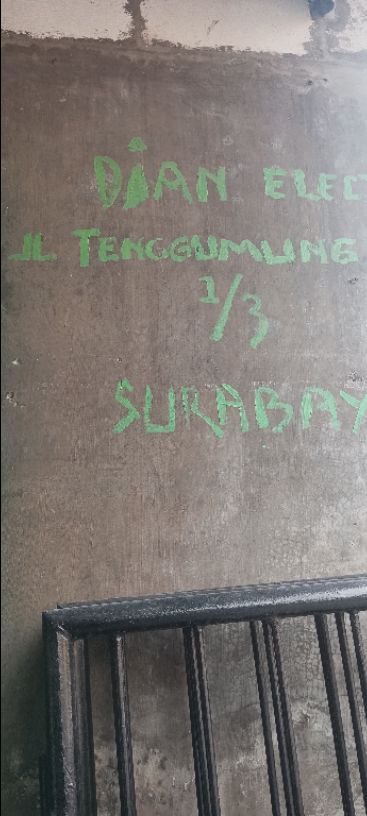 DIAN ELEC
JL TENGGUMUNG
1/3
SURABAY